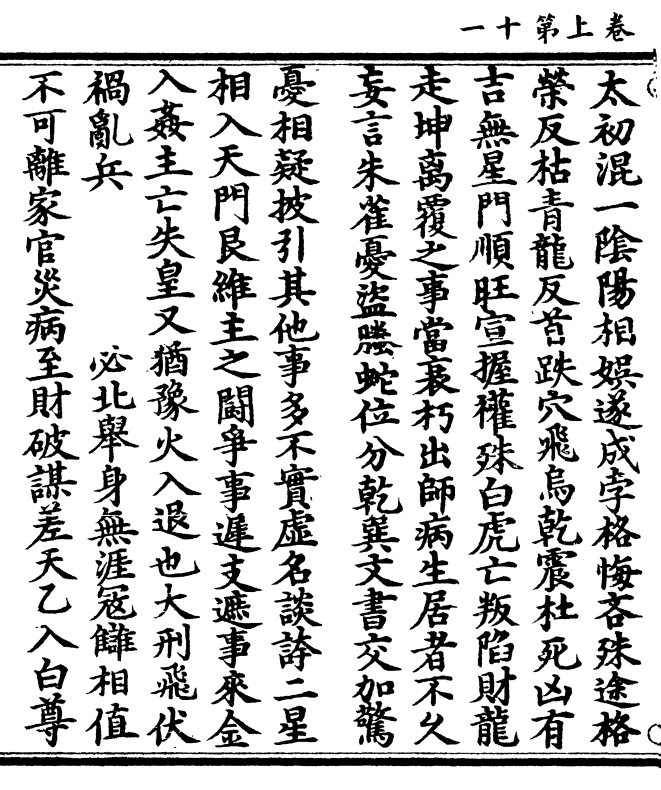 卷上第十一
太初混一陰陽相娯遂成孛格悔吝殊途格
榮反枯青龍反首跌穴飛鳥乾震杜死凶有
吉無星門順旺宣握權殊白虎亡叛陷財龍
走坤离覆之事當衰朽出師病生居者不久
妄言朱雀憂盜螣蛇位分乾巽文書交加驚
憂相疑披引其他事多不實虛名談誇二星
相入天門艮維主之鬪爭事遲支遮事來金
入姦主亡失皇又猶豫火入退也大刑飛伏
禍亂兵 必北舉身無涯冦讎相值
不可離家官災病至財破謀差天乙入白尊